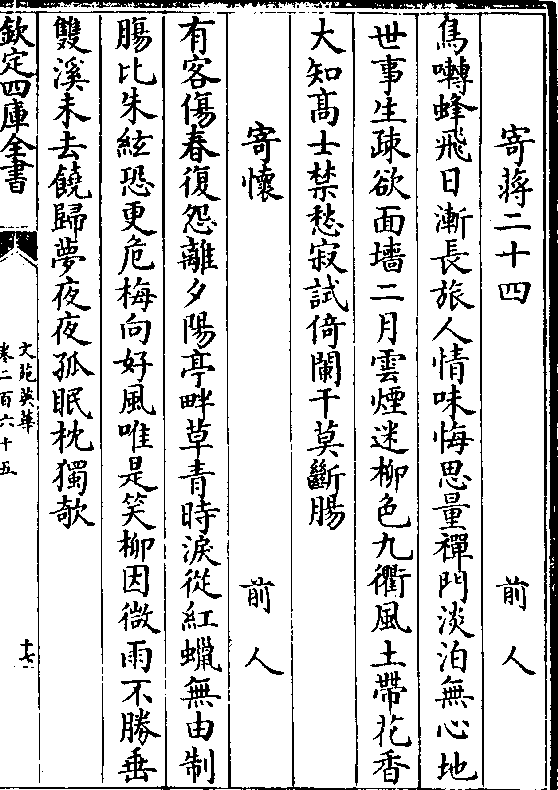 寄蔣二十四　前人
鳥囀蜂飛日漸長旅人情味悔思量禪門淡泊無心地
世事生疎欲面墻二月雲煙迷柳色九衢風土帶花香
大知髙士禁愁寂試倚闌干莫斷腸
寄懷　前人
有客傷春復怨離夕陽亭畔草青時淚從紅蠟無由制
腸比朱絃恐更危梅向好風唯是笑柳因微雨不勝垂
雙溪未去饒歸夢夜夜孤眠枕獨欹
欽定四庫全書
文苑英華
卷二百六十五
十七